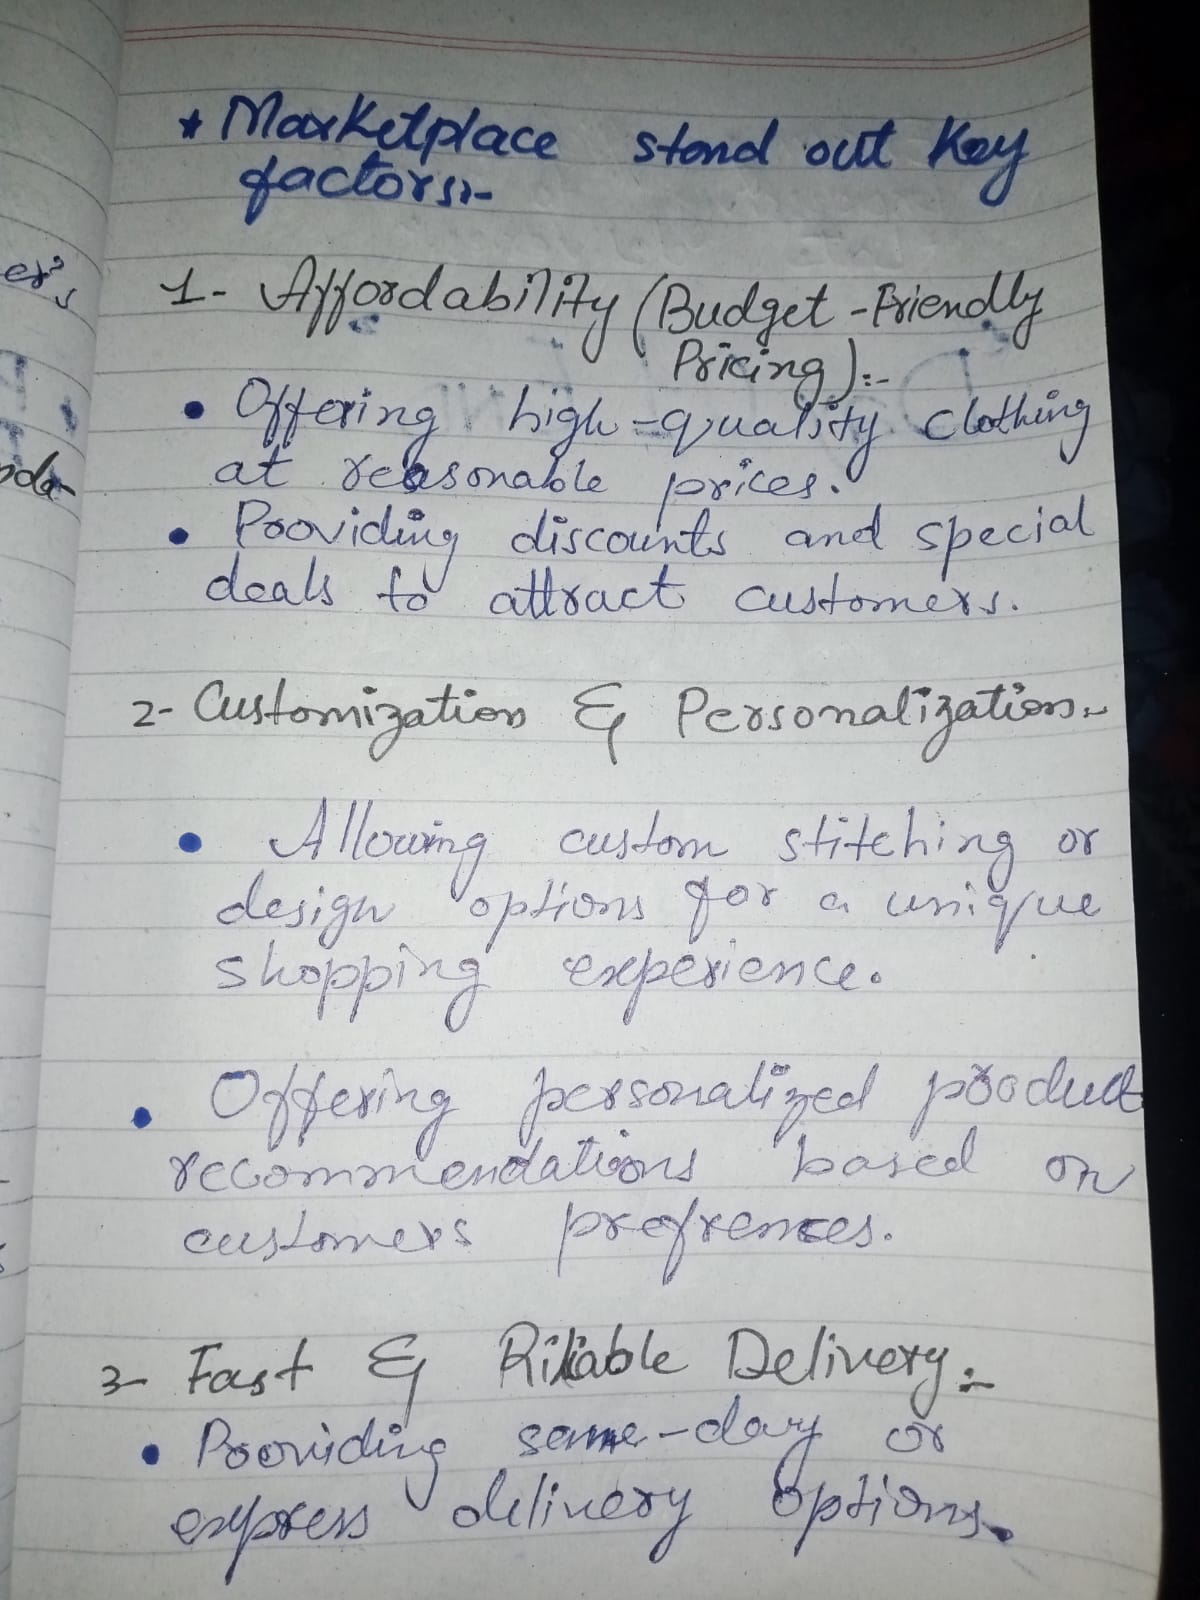 * Marketplace stand out Key
factors:-
er's
1- Affordability (Budget-Friendly
Pricing):-
• Offering high-quality clothing
at reasonable prices.
• Providing discounts and special
deals to attract customers.
2- Customization & Personalization:-
• Allowing custom stitching or
design options for a unique
shopping experience.
• Offering personalized product
recommendations based on
customers prefrences.
3- Fast & Riliable Delivery:-
• Providing same-day or
express delivery options.